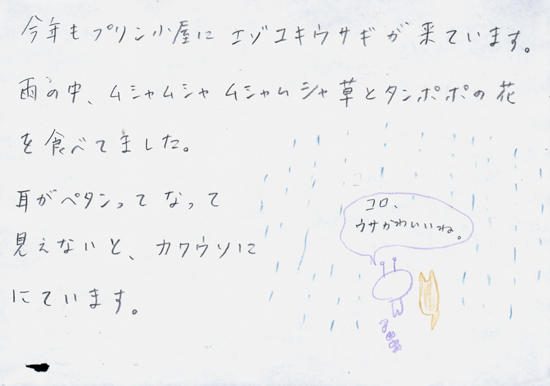 今年もプリン小屋にエゾユキウサギが来ています。
雨の中、ムシャムシャムシャムシャ草とタンポポの花
を食べてました。
耳がペタンってなって
見えないと、カワウソに
にています。
コロ、
ウサかわいいね。